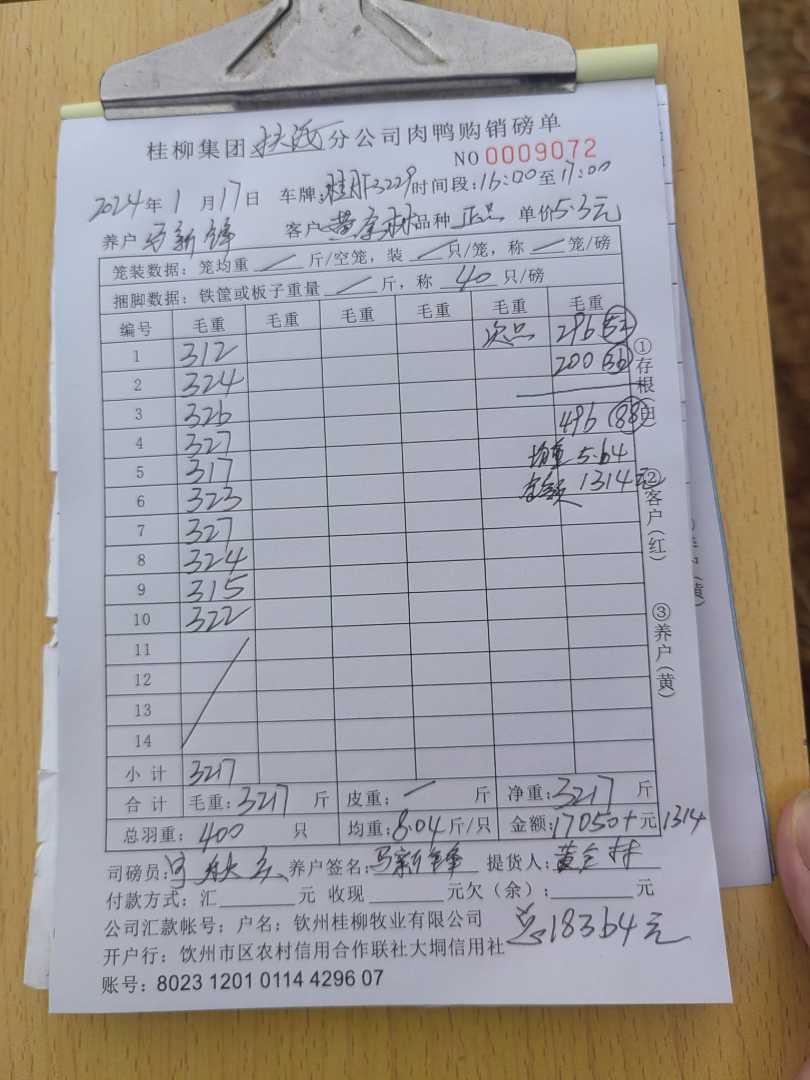 桂柳集团 分公司肉鸭购销磅单
NO 0009072
2024年1月17日 车牌: 3229 时间段:16:00至17:00
养户 马新锋 客户 黄金林 品种 正品 单价5.3元
笼装数据:笼均重 一 斤/空笼,装 一 只/笼,称 一 笼/磅
捆脚数据:铁筐或板子重量 一 斤,称 40 只/磅
编号 毛重 毛重 毛重 毛重 毛重 毛重
1 312 次品 296 52
2 324 200 36
3 326 496 (88)
4 327 均重 5.64
5 317 金额 1314元
6 323
7 327
8 324
9 315
10 322
11
12
13
14
小计 3217
合计 毛重:3217 斤 皮重:一 斤 净重:3217 斤
总羽重:400 只 均重:8.04斤/只 金额:17050+元1314
司磅员: 养户签名:马新锋 提货人:黄金林
付款方式:汇 元 收现 元欠(余): 元
公司汇款帐号:户名:钦州桂柳牧业有限公司
总18364元
开户行:钦州市区农村信用合作联社大垌信用社
账号:8023 1201 0114 4296 07
①存根(白)
②客户(红)
③养户(黄)